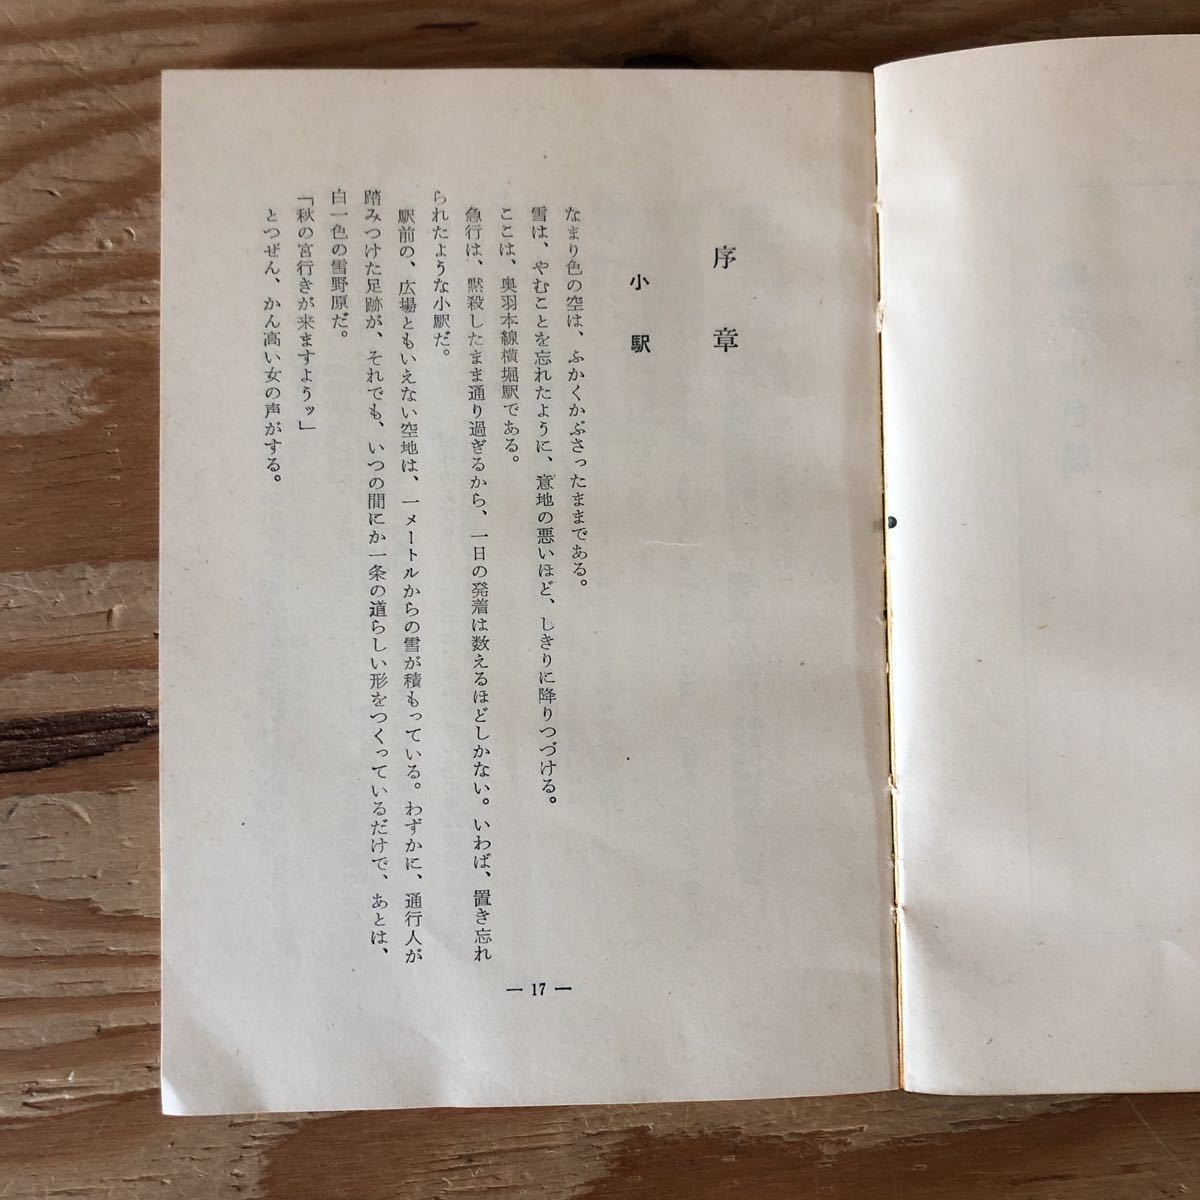 序章
小駅
なまり色の空は、ふかくかぶさったままである。
雪は、やむことを忘れたように、意地の悪いほど、しきりに降りつづける。
ここは、奥羽本線横堀駅である。
急行は、黙殺したまま通り過ぎるから、一日の発着は数えるほどしかない。いわば、置き忘れ
られたような小駅だ。
駅前の、広場ともいえない空地は、一メートルからの雪が積もっている。わずかに、通行人が
踏みつけた足跡が、それでも、いつの間にか一条の道らしい形をつくっているだけで、あとは、
白一色の雪野原だ。
「秋の宮行きが来ますようッ」
とつぜん、かん高い女の声がする。
— 17 —